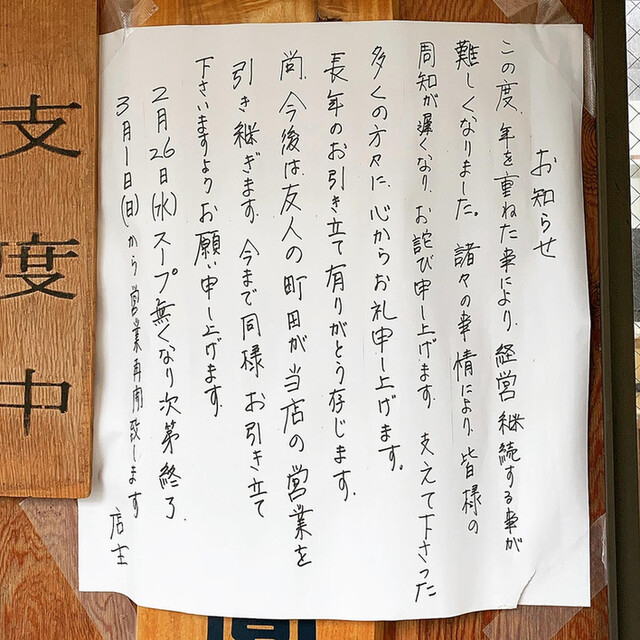 お知らせ
この度、年を重ねた事により、経営継続する事が
難しくなりました。諸々の事情により、皆様の
周知が遅くなり、お詫び申し上げます。支えて下さった
多くの方々に、心からお礼申し上げます。
長年のお引き立て有りがとう存じます。
尚、今後は友人の町田が当店の営業を
引き継ぎます。今まで同様、お引き立て
下さいますようお願い申し上げます。
2月26日(水)スープ無くなり次第終了.
3月1日(日)から営業再開致します 店主
支度中